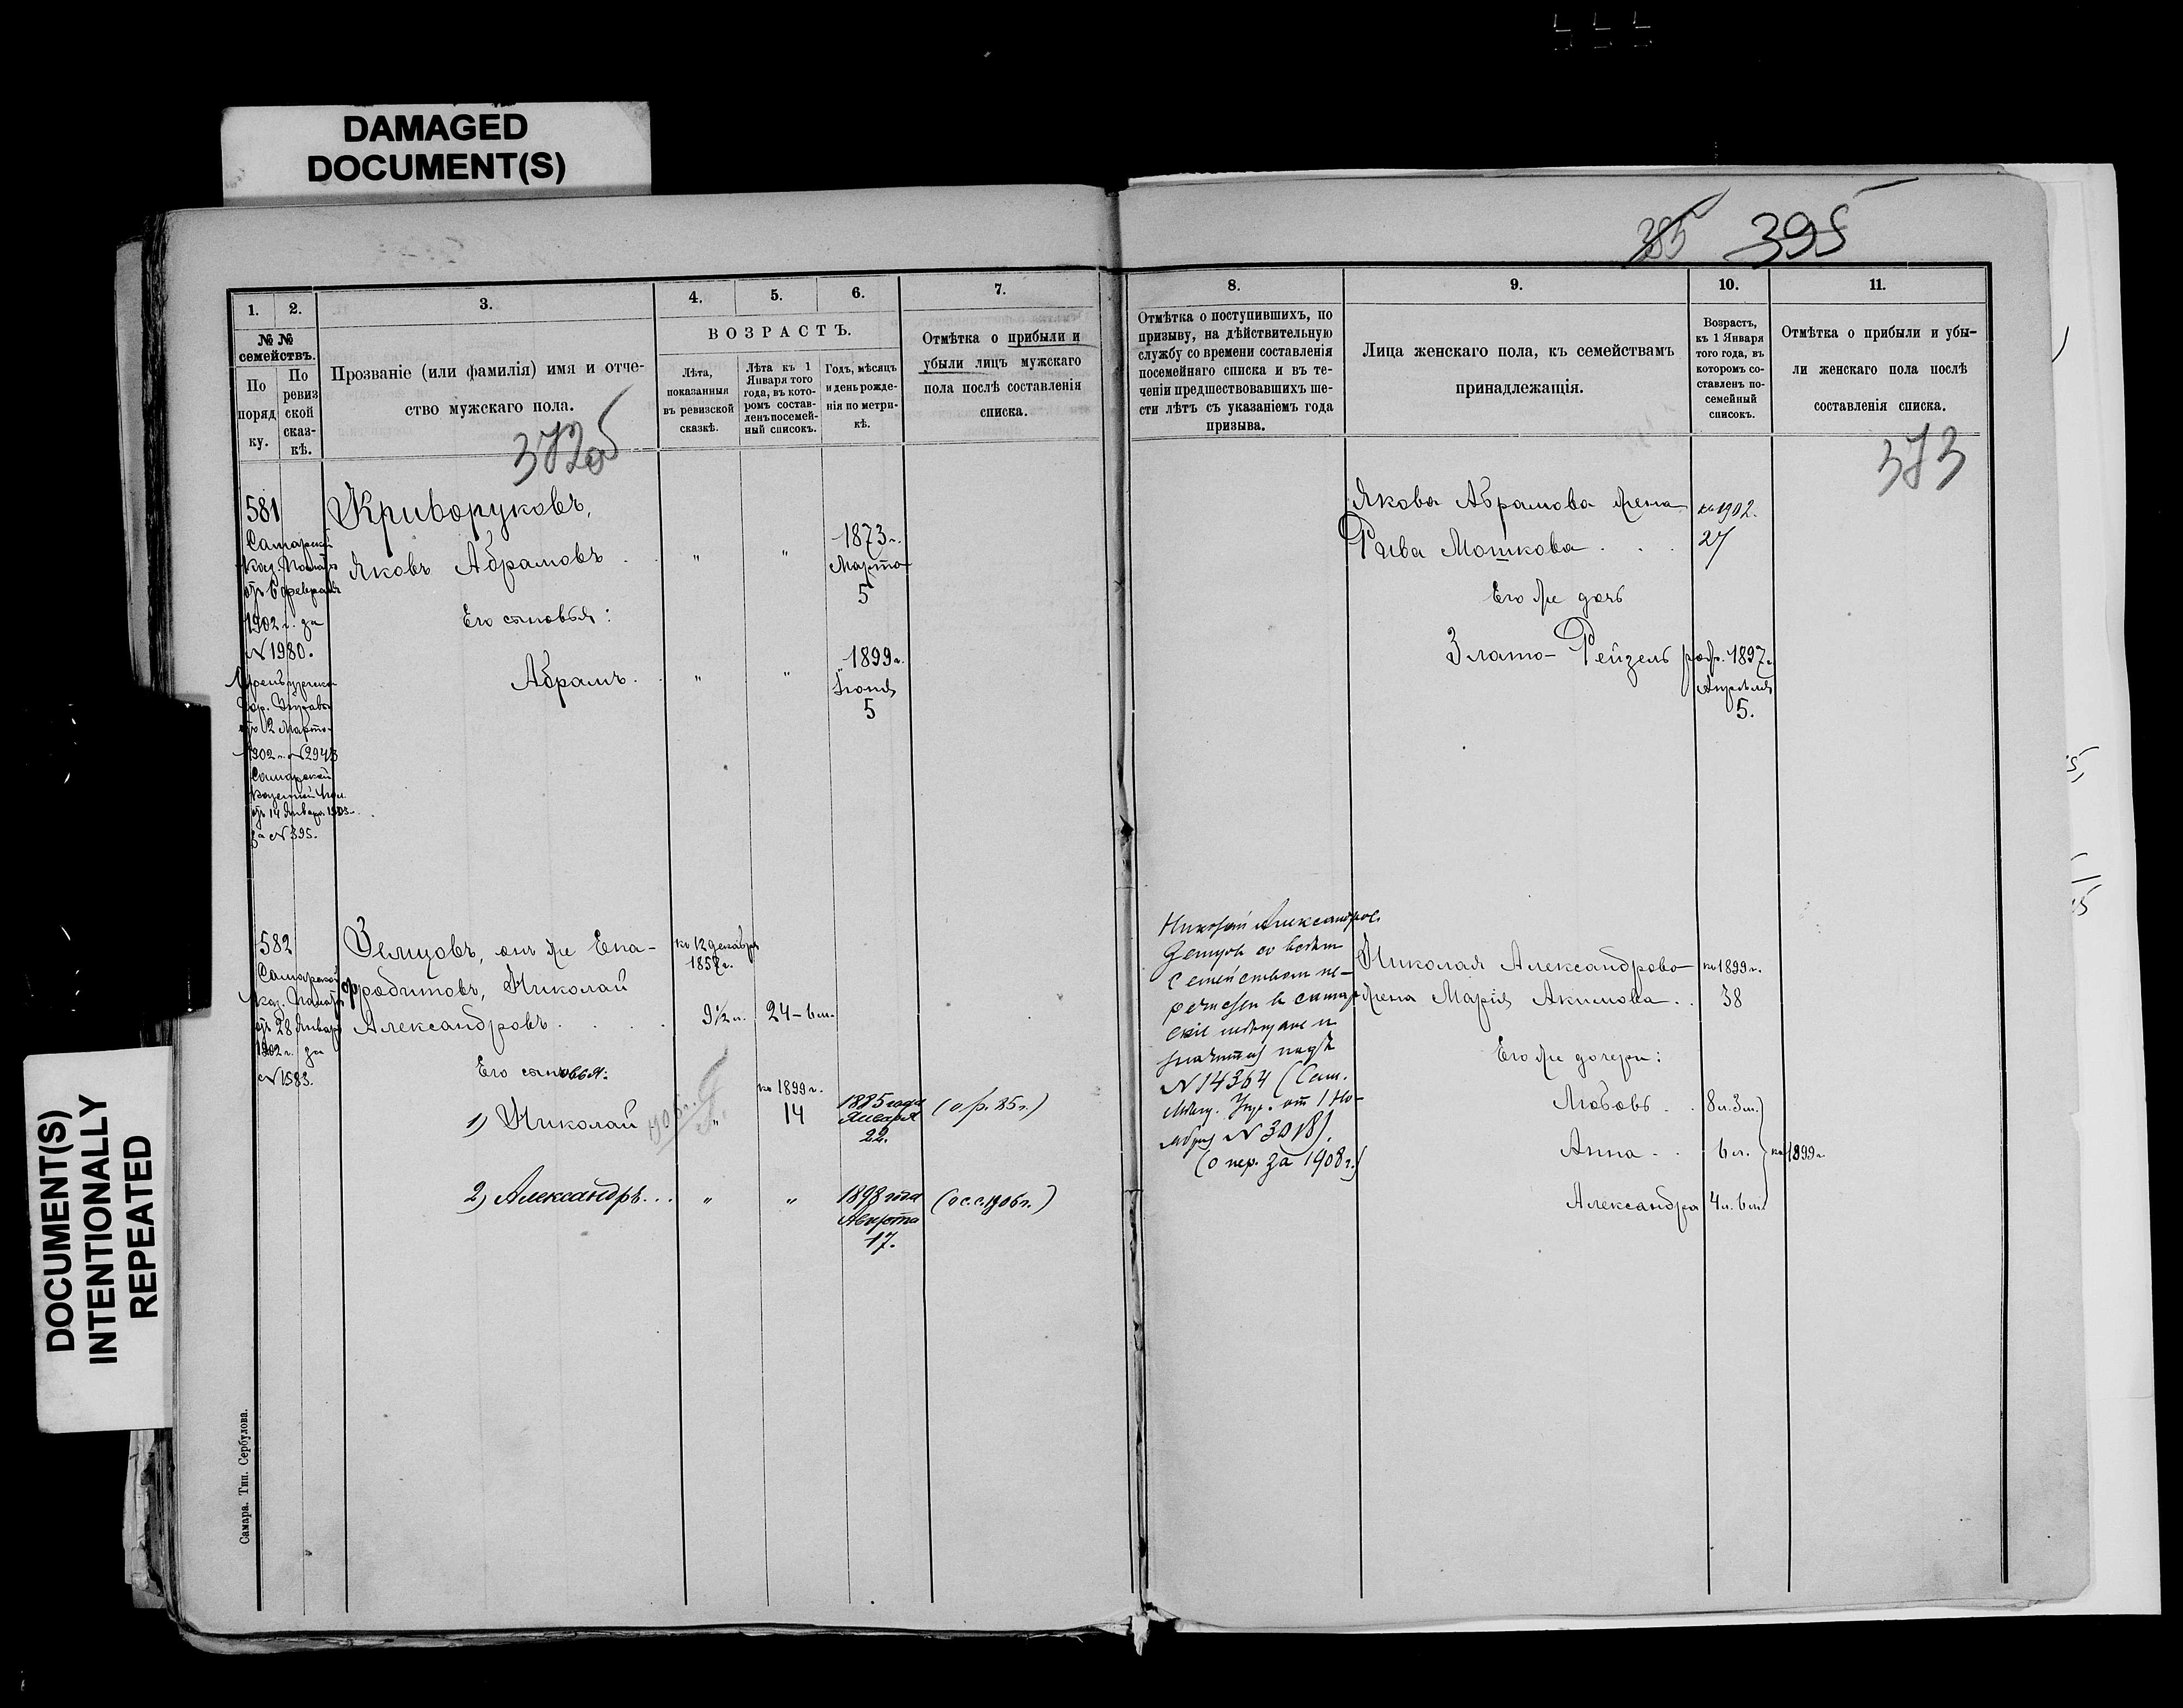 DAMAGED
DOCUMENT(S)
385 395
1.
2.
3.
4.
5.
6.
7.
№ №
семействъ.
По
поряд
ку.
По
ревиз
ской
сказ-
кѣ.
Прозваніе (или фамилія) имя и отче-
ство мужскаго пола.
372об
ВОЗРАСТЪ.
Лѣта,
показанныя
въ ревизской
сказкѣ.
Лѣта къ 1
Января того
года, въ кото-
ромъ состав-
ленъ посемей-
ный списокъ.
Годъ, мѣсяцъ
и день рожде-
нія по метри-
кѣ.
Отмѣтка о прибыли и
убыли лицъ мужскаго
пола послѣ составленія
списка.
581
Самарской
Каз. Палаты
отъ 6 февраля
1902 г. за
№ 1980.
Гор. Управы
отъ 12 Марта
1902 г. № 2943
Самарской
Казенной Пал.
отъ 14 Января 1903
за № 395.
Криворуковъ,
Яковъ Абрамовъ . . " "
1873 г.
Марта
5
Его сыновья:
Абрамъ. . " "
1899 г.
Іюня
5
582
Самарской
Каз. Палаты
отъ 28 Января
1902 г. за
№ 1583.
Земцовъ, онъ же Епа-
фродитовъ, Николай
Александровъ . . . .
къ 12 декабря
1857 г.
9½ л. 24-6 м.
Его сыновья:
1) Николай "
къ 1899 г.
14
1885 года
Января
22.
(о р. 85 г.)
2) Александръ... " "
1898 года
Августа
17.
(о с.с. 1906 г.)
8.
9.
10.
11.
Отмѣтка о поступившихъ, по
призыву, на дѣйствительную
службу со времени составленія
посемейнаго списка и въ те-
ченіи предшествовавшихъ ше-
сти лѣтъ съ указаніемъ года
призыва.
Лица женскаго пола, къ семействамъ
принадлежащія.
Возрастъ,
къ 1 Января
того года, въ
которомъ со-
ставленъ по-
семейный
списокъ.
Отмѣтка о прибыли и убы-
ли женскаго пола послѣ
составленія списка.
373
Якова Абрамова жена
Рива Мошкова . . .
къ 1902.
27
Его же дочь
Злато-Рейзель
род. 1897 г.
Апрѣля
5.
Николай Александров.
Земцов со всем
семейством пе-
речислен в самар-
ские мещане и
значится под
№ 14364 (Сам.
Мещ. Упр. от 1 Но-
ября № 3018).
(о пер. за 1908 г.)
Николая Александрова
жена Марія Акимова. .
къ 1899 г.
38
Его же дочери:
Любовь . . 8 л. 3 м.
Анна . . 6 л. къ 1899 г.
Александра 4 л. 6 м.
DOCUMENT(S)
INTENTIONALLY
REPEATED
Самара. Тип. Сербулова.